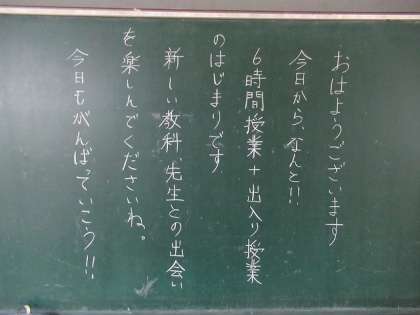 おはようございます
今日から、なんと!!
6時間授業+出入り授業
のはじまりです
新しい教科、先生との出会い
を楽しんでくださいね。
今日もがんばっていこう!!